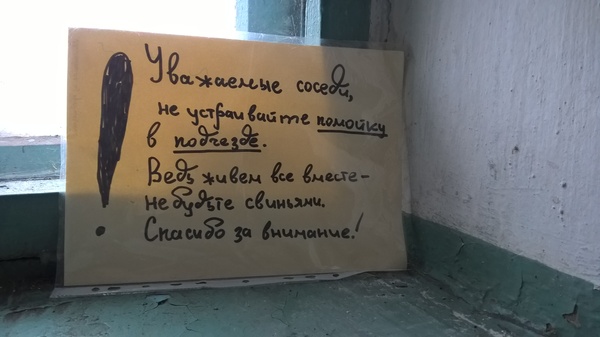 Уважаемые соседи,
не устраивайте помойку
в подъезде.
Ведь живем все вместе-
не будьте свиньями.
Спасибо за внимание!